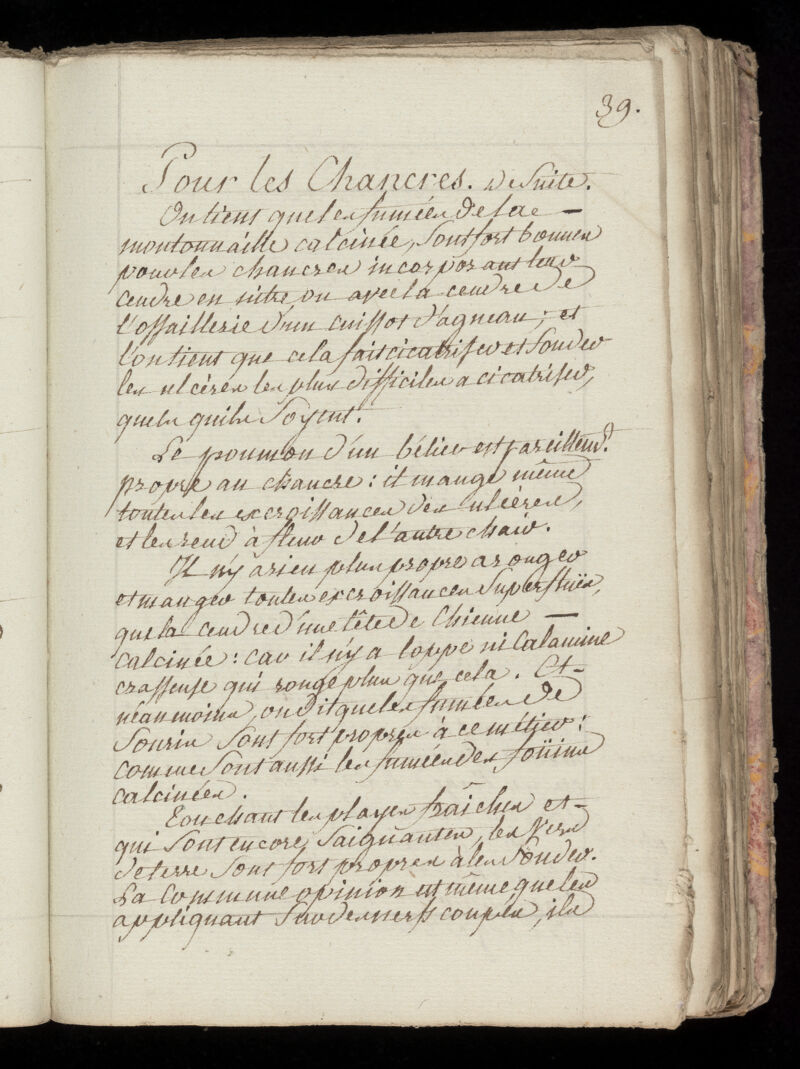 39.
Pour les Chancres. de Suite.
On tient que les fumées de la —
montonnaille calcinée, sont fort bonnes
pour les chancres incorporant leur
cendre en nitre, ou avec la cendre de
l'ossaillerie d'un cuissot d'agneau; et
l'on tient que cela fait cicatriser et souder
les ulcéres les plus difficiles a cicatriser,
quels quils soyent.
Le poumon d'un bélier est pareillemt.
propre au chancre: il mange même
toutes les excroissances des ulcéres,
et les rend à fleur de l'autre chair.
Il n'y a rien plus propre a ronger
et manger toutes excroissances superfluës,
que la cendre d'une tête de Chienne —
calcinée: car il n'y a loppe ni Calamine
crasseuse qui ronge plus que cela. Et
néanmoins, on dit que les fumées de
Souris sont fort propres à ce métier:
comme sont aussi les fumées des foüins
calcinées.
Touchant les playes fraîches et
qui sont encore saignantes, les Vers
de terre sont fort propres à les souder.
La commune opinion est même que les
appliquant sur des nerfs coupés, ils